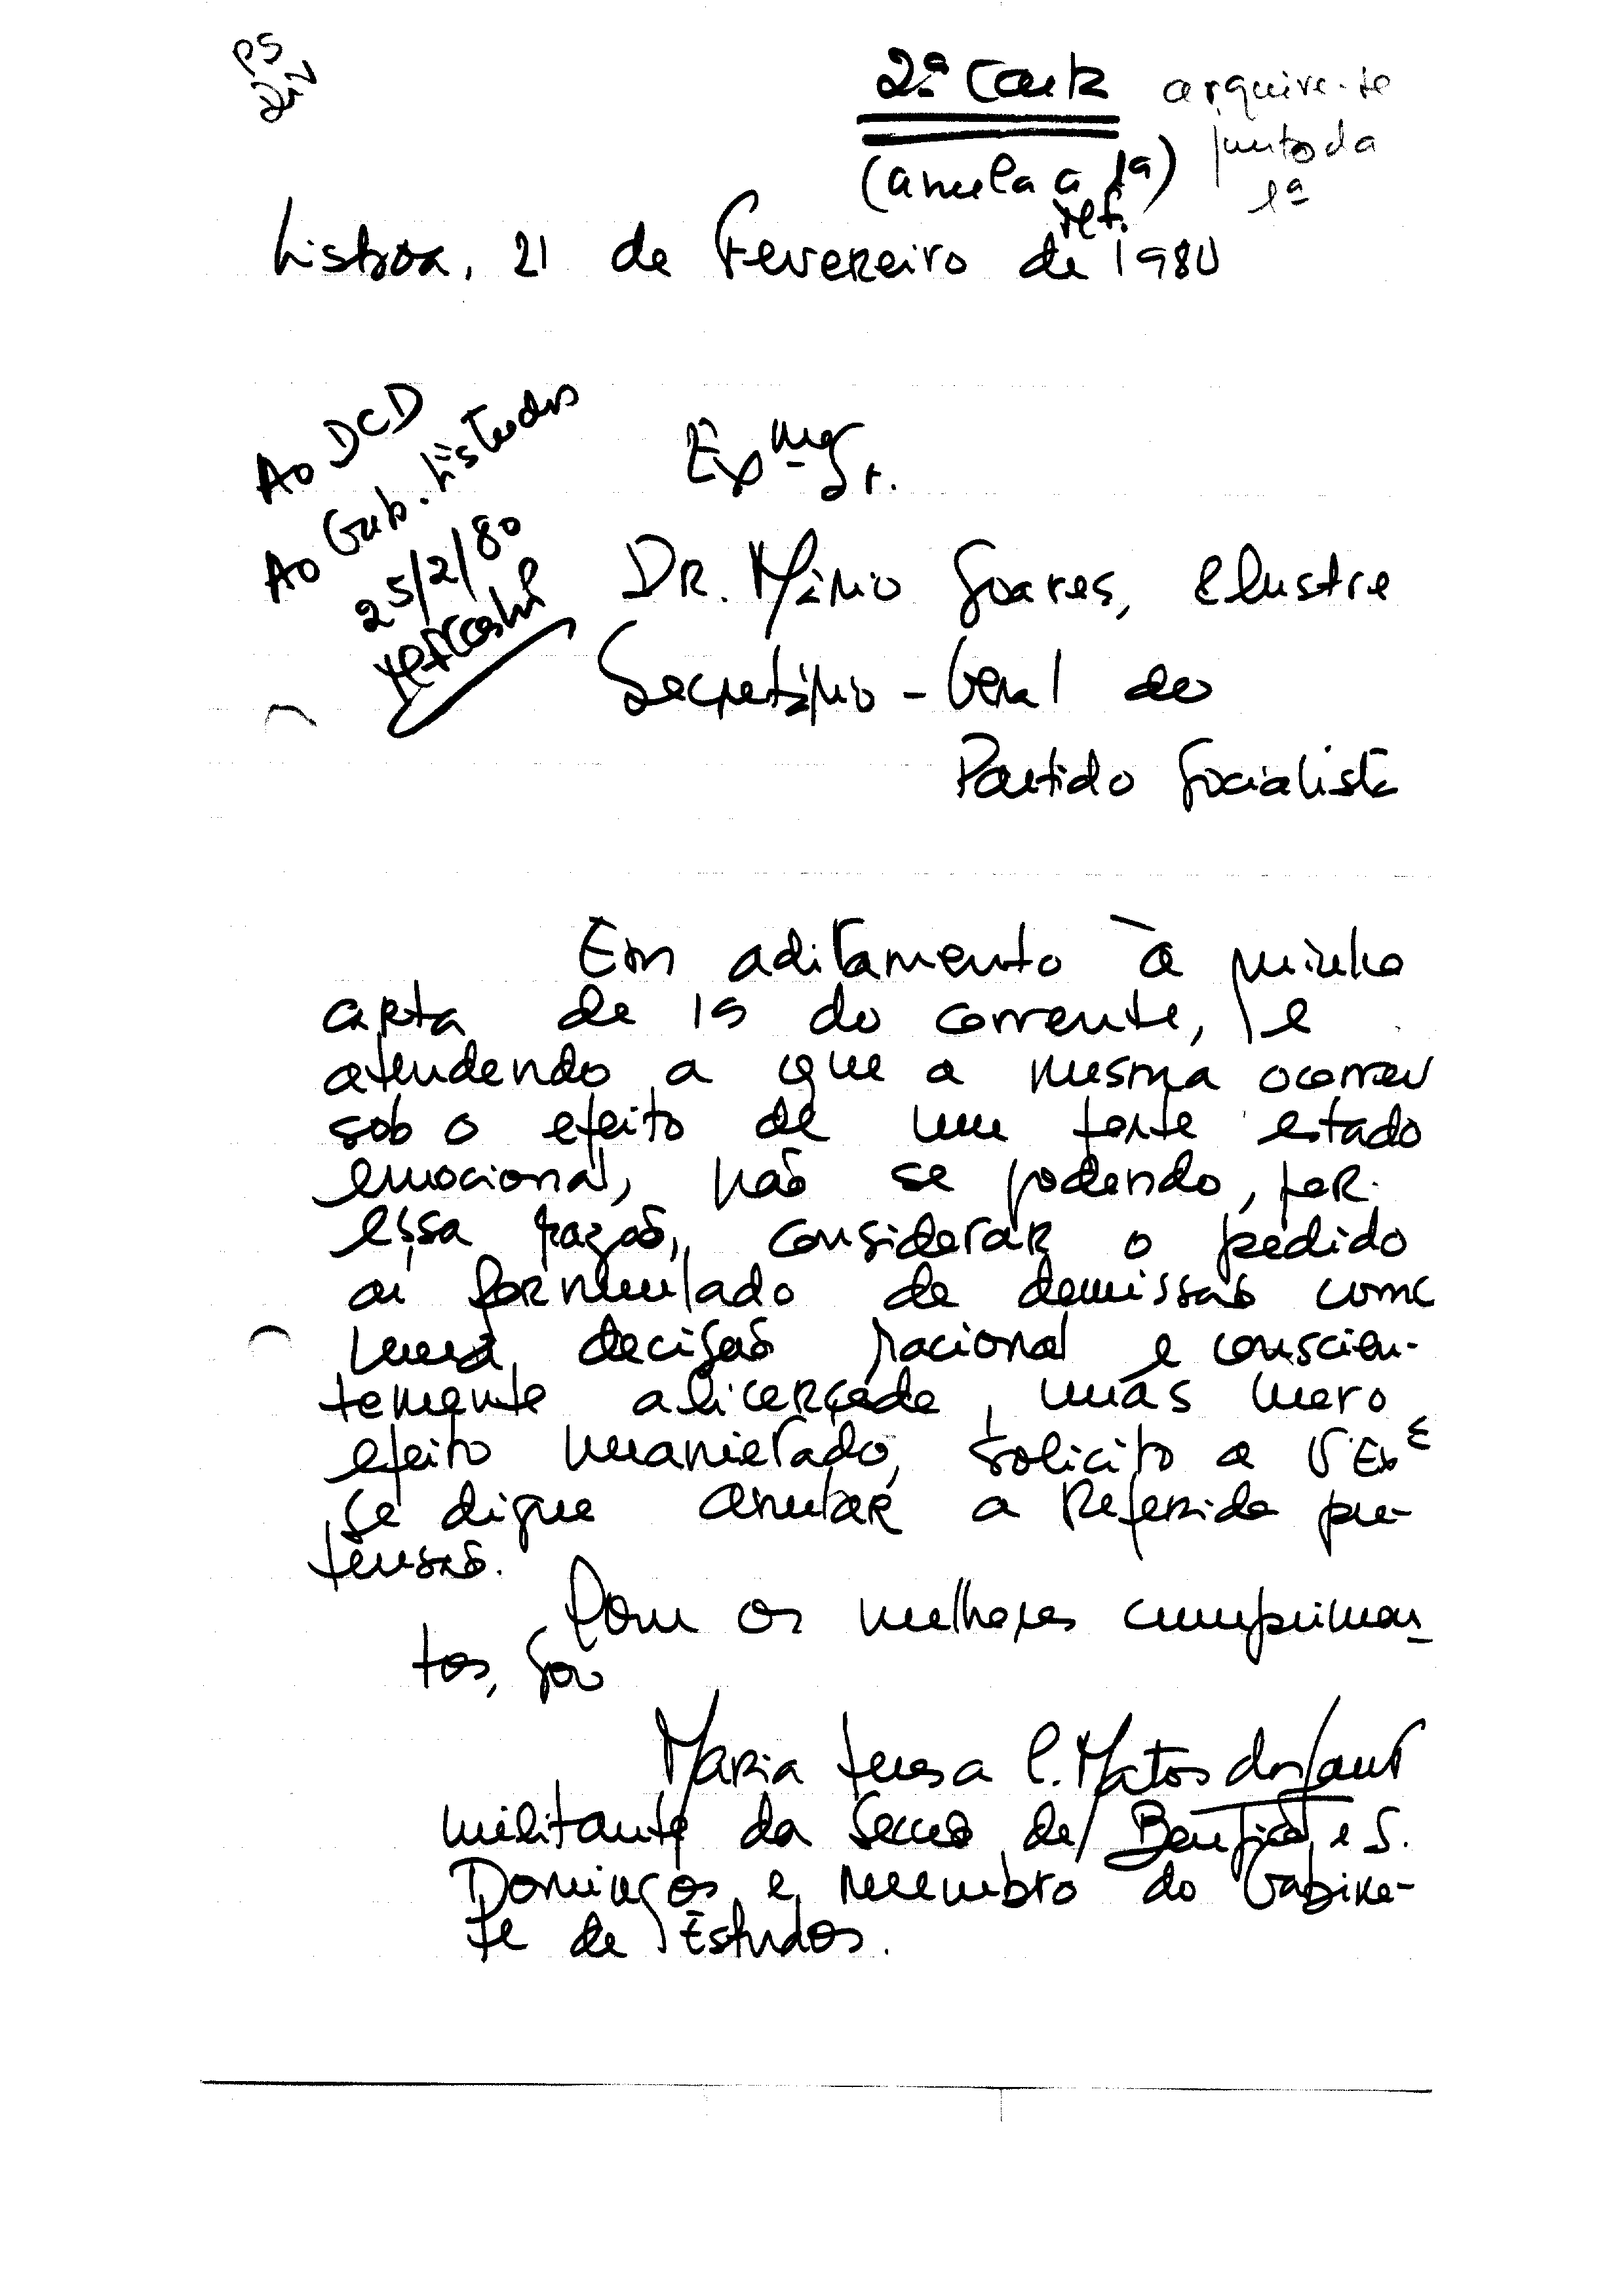 PS
2ª Carta
arquive-se
junto da
1ª
(anula a 1ª)
ref.
Lisboa, 21 de Fevereiro de 1980
Ao DCD
Ao Gab. Estudos
25/2/80
Exmº Sr.
Dr. Mário Soares, Ilustre
Secretário-Geral do
Partido Socialista
Em aditamento à minha
carta de 19 do corrente, e
atendendo a que a mesma ocorreu
sob o efeito de um forte estado
emocional, não se podendo, por
essa razão, considerar o pedido
aí formulado de demissão como
uma decisão racional e conscien-
temente alicerçada, mas mero
efeito, solicito a V. Exª
se digne anular a referida pre-
tensão.
Com os melhores cumprimen-
tos, sou
Maria Teresa C. Matos dos Santos
militante da Secção de Benfica e S.
Domingos e membro do Gabine-
te de Estudos.